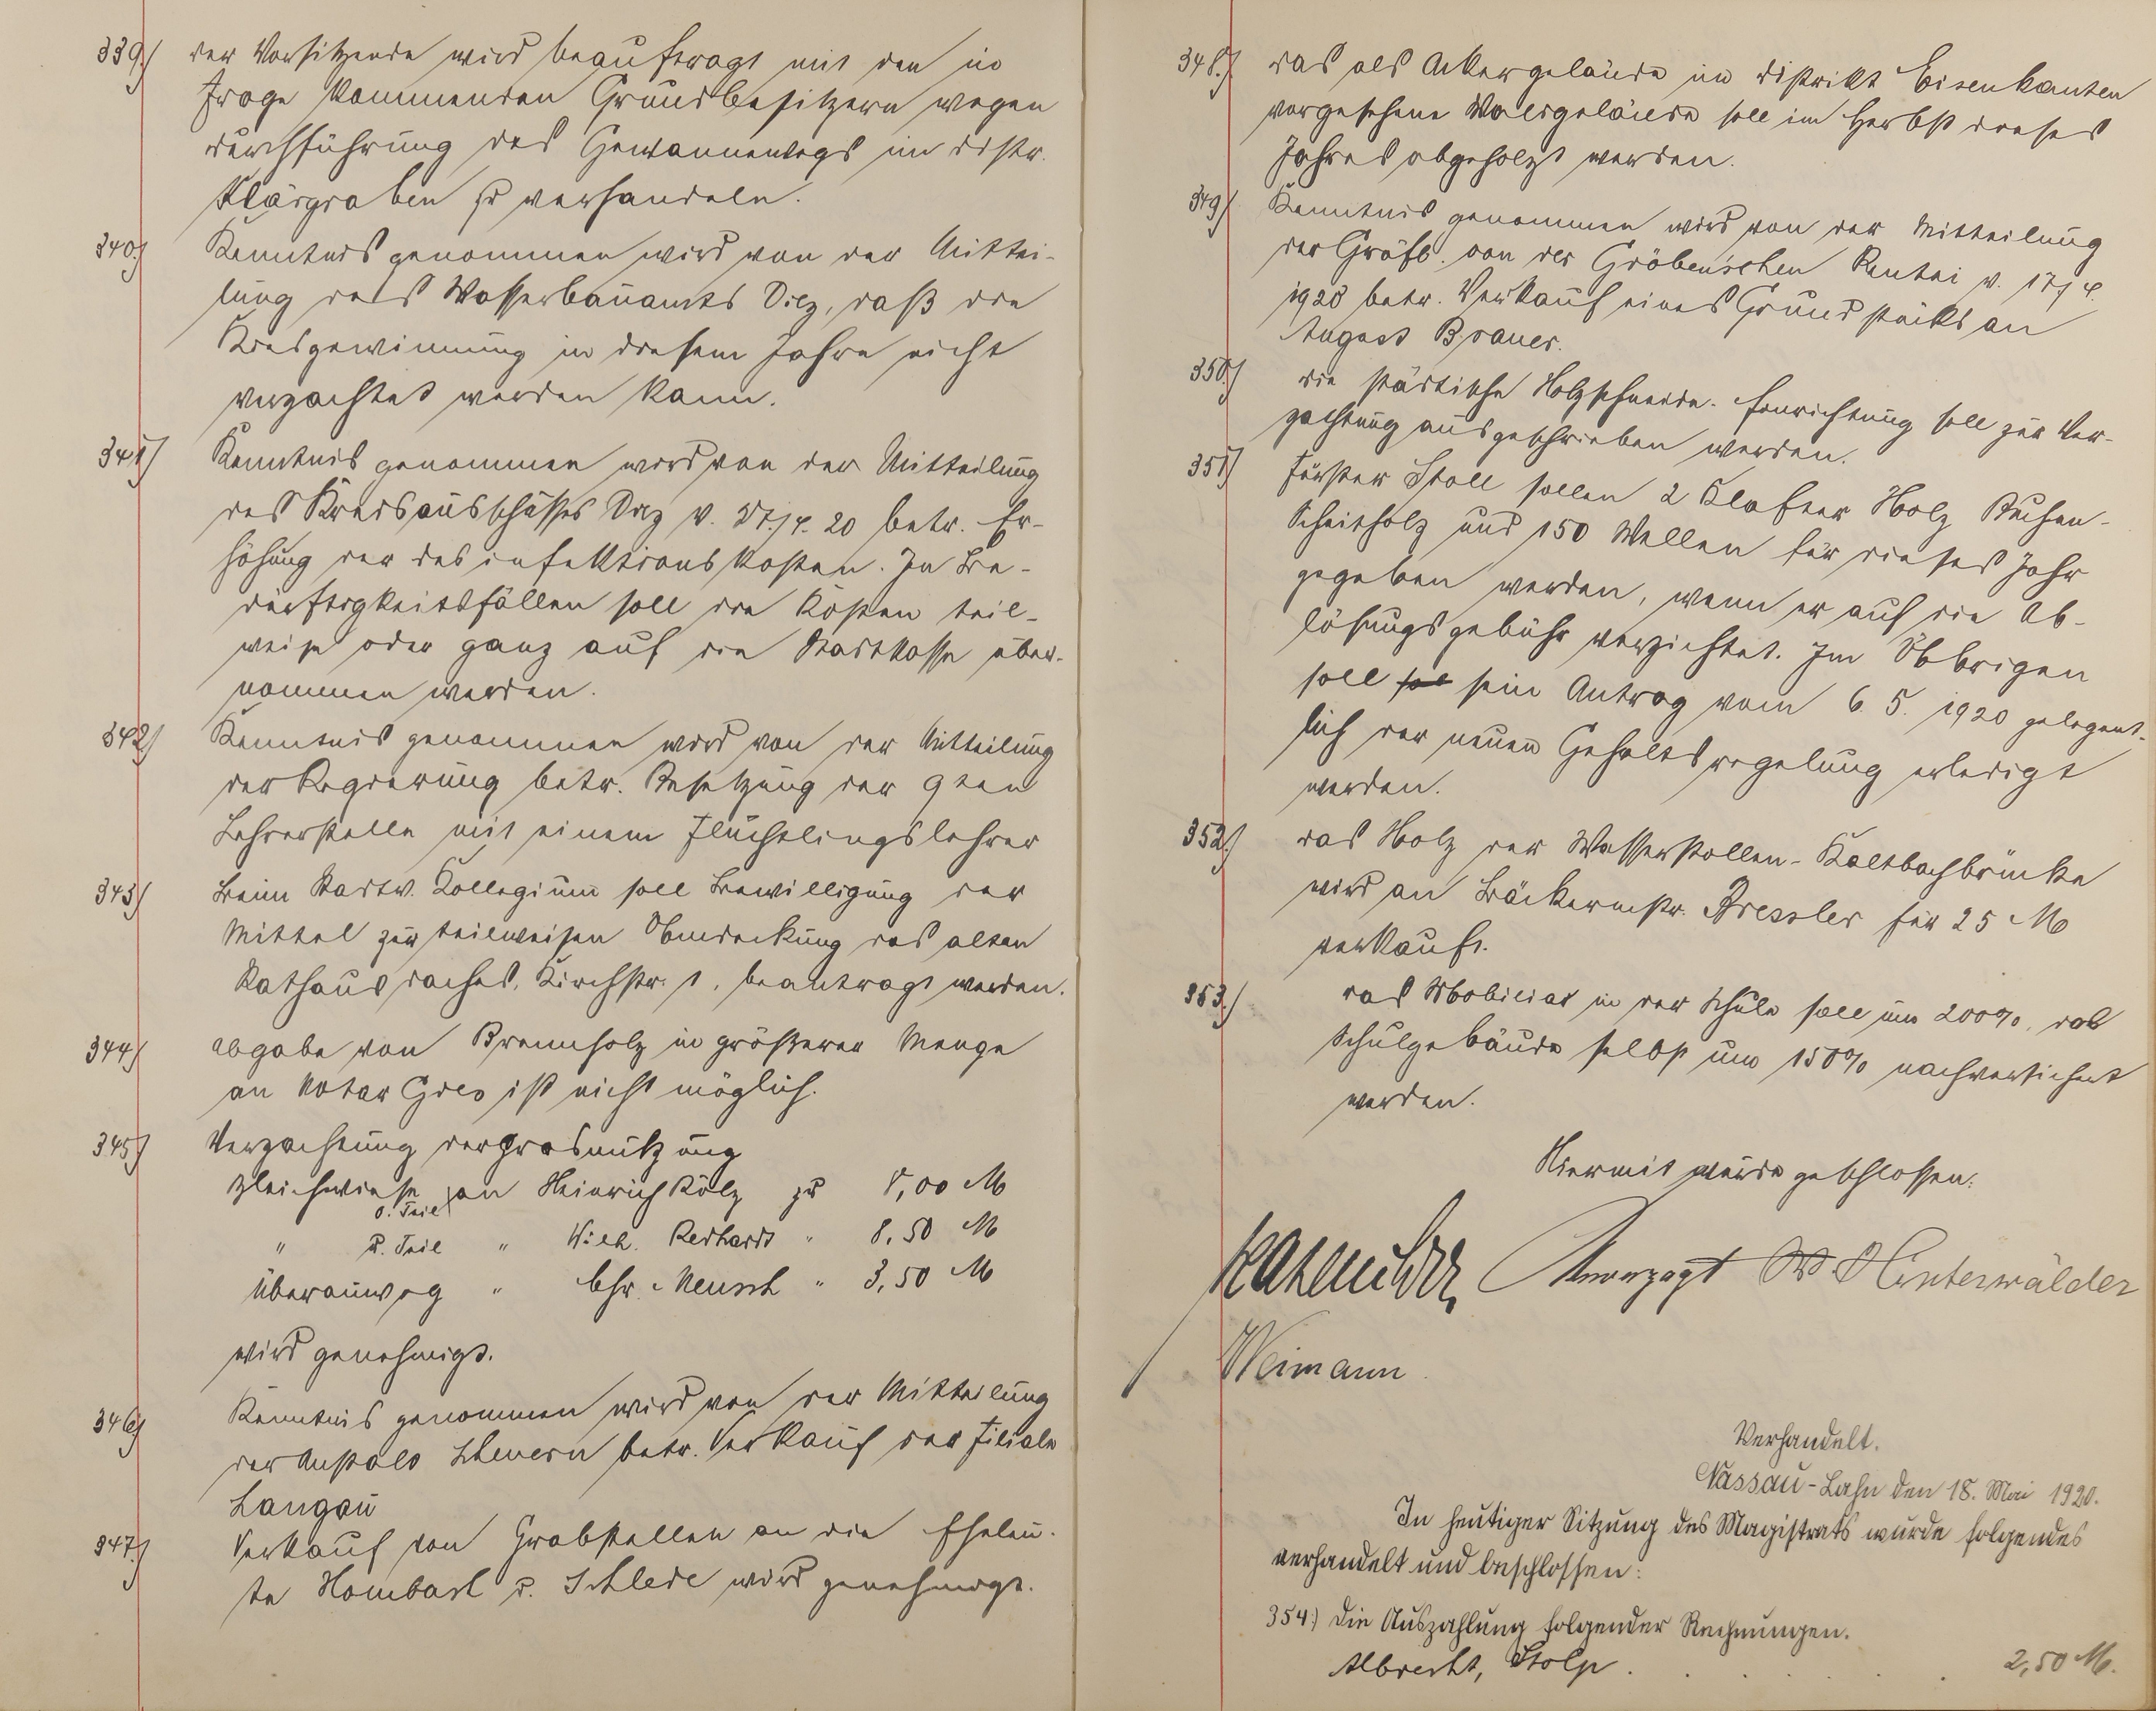 339.) der Vorsitzende wird beauftragt mit den in
Frage kommenden Grundbesitzern wegen
Durchführung des Gewannenwegs im Distr.
Klärgraben zu verhandeln.
340.) Kenntnis genommen wird von der Mittei-
lung des Wasserbauamts Diez, daß die
Kiesgewinnung in diesem Jahre nicht
verpachtet werden kann.
341.) Kenntnis genommen wird von der Mitteilung
des Kreisausschusses Diez v. 27./4. 20 betr. Er-
höhung der Desinfektionskosten. In Be-
dürftigkeitsfällen soll die Kosten teil-
weise oder ganz auf die Stadtkasse über-
nommen werden.
342.) Kenntnis genommen wird von der Mitteilung
der Regierung betr. Besetzung der 9ten
Lehrerstelle mit einem Flüchtlingslehrer
343.) Beim Stadtv. Kollegium soll Bewilligung der
Mittel zur teilweisen Umdeckung des alten
Rathausdaches, Kirchstr. 1, beantragt werden.
344.) Abgabe von Brennholz in größerer Menge
an Notar Gies ist nicht möglich.
345.) Verpachtung der Grasnutzung
Bleichwiese an Heinrich Külz zu 8,00 M
o. Teil
" u. Teil " Wilh. Redhardt " 8,50 M
Überauweg " Chr. Meusch " 3,50 M
wird genehmigt.
346.) Kenntnis genommen wird von der Mitteilung
der Anstalt Scheuern betr. Verkauf der Filiale
Langau
347.) Verkauf von Grabstellen an die Eheleu-
te Hombach u. Schlede wird genehmigt.
348.) Das als Ackergelände im Distrikt Eisenkauten
vorgesehene Waldgelände soll im Herbst dieses
Jahres abgeholzt werden.
349.) Kenntnis genommen wird von der Mitteilung
der Gräfl. von der Gröben'schen Rentei v. 17./4.
1920 betr. Verkauf eines Grundstücks an
August Brauer.
350.) die städtische Holzschneide-Einrichtung soll zur Ver-
pachtung ausgeschrieben werden.
351.) Förster Stoll sollen 2 Klafter Holz Buchen-
Scheitholz und 150 Wellen für dieses Jahr
gegeben werden, wenn er auf die Ab-
lösungsgebühr verzichtet. Im Übbrigen
soll sol sein Antrag vom 6. 5. 1920 gelegent-
lich der neuen Gehaltsregelung erledigt
werden.
352.) das Holz der Wasserstollen-Kaltbachbrücke
wird an Bäckermstr. Bressler für 25 M
verkauft.
353.) das Mobiliar in der Schule soll um 200%, das
Schulgebäude selbst um 150% nachversichert
werden.
Hiermit wurde geschlossen.
Unverzagt W. Hinterwälder
Weimann
Verhandelt.
Nassau-Lahn den 18. Mai 1920.
In heutiger Sitzung des Magistrats wurde folgendes
verhandelt und beschlossen:
354.) Die Auszahlung folgender Rechnungen.
Albrecht, Stolp . . . . . . 2,50 M.